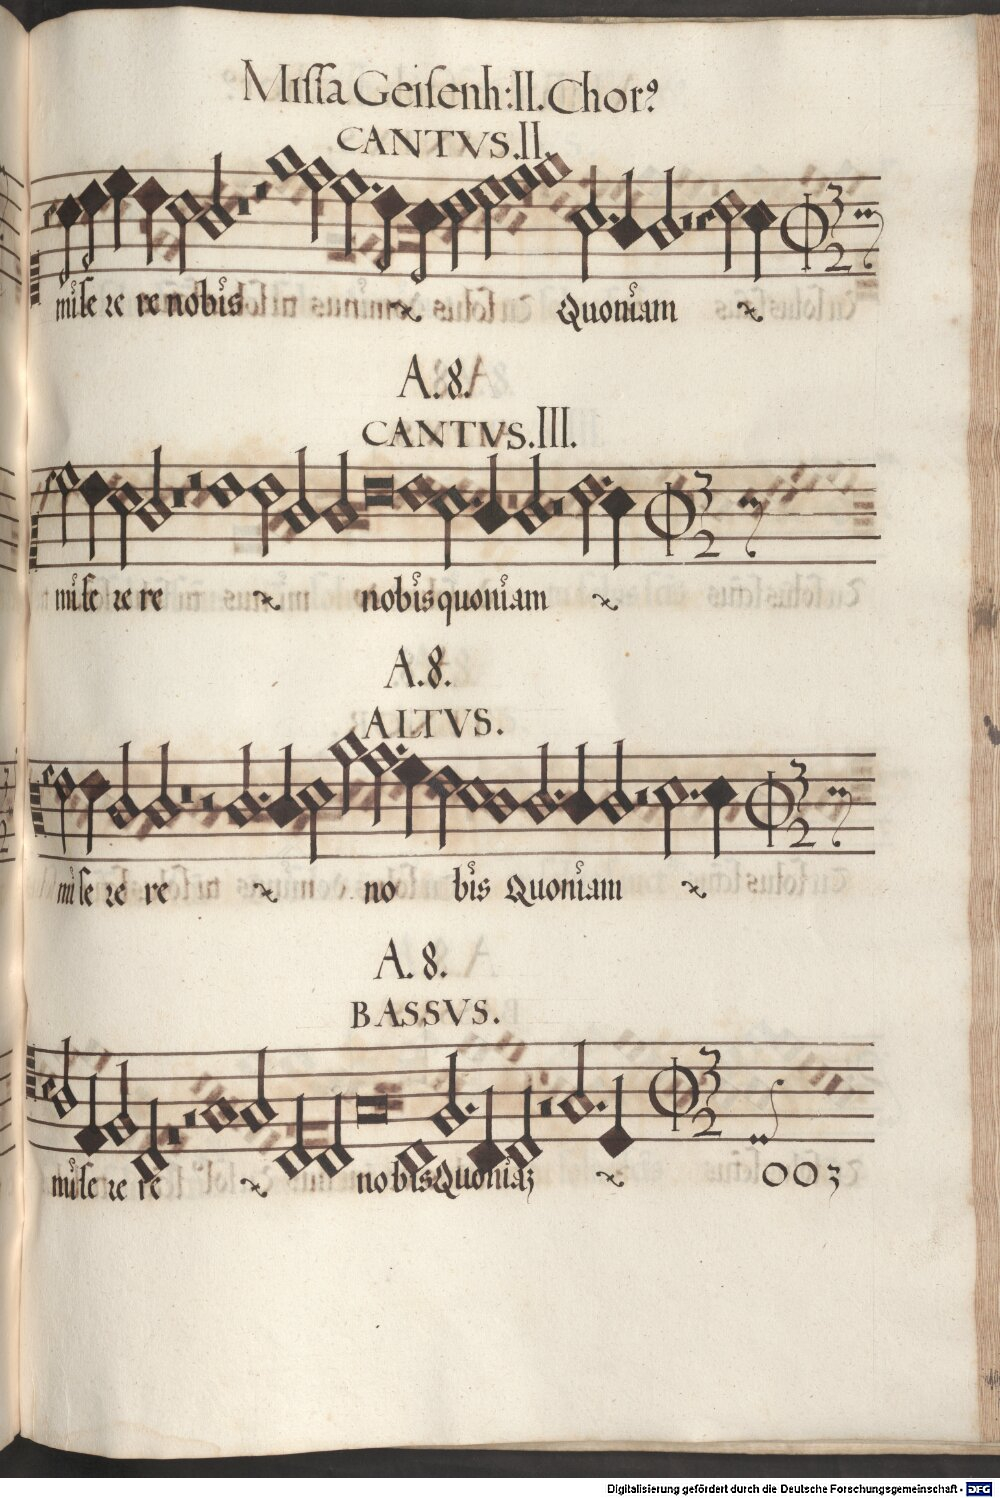 Missa Geisenh: II. Chor9
CANTVS. II.
mise re re nobis Quoniam
A. 8.
CANTVS. III.
mise re re nobis quoniam
A. 8.
ALTVS.
mise re re no bis Quoniam
A. 8.
BASSVS.
mise re re nobis Quoniaz OO3
Digitalisierung gefördert durch die Deutsche Forschungsgemeinschaft - DFG